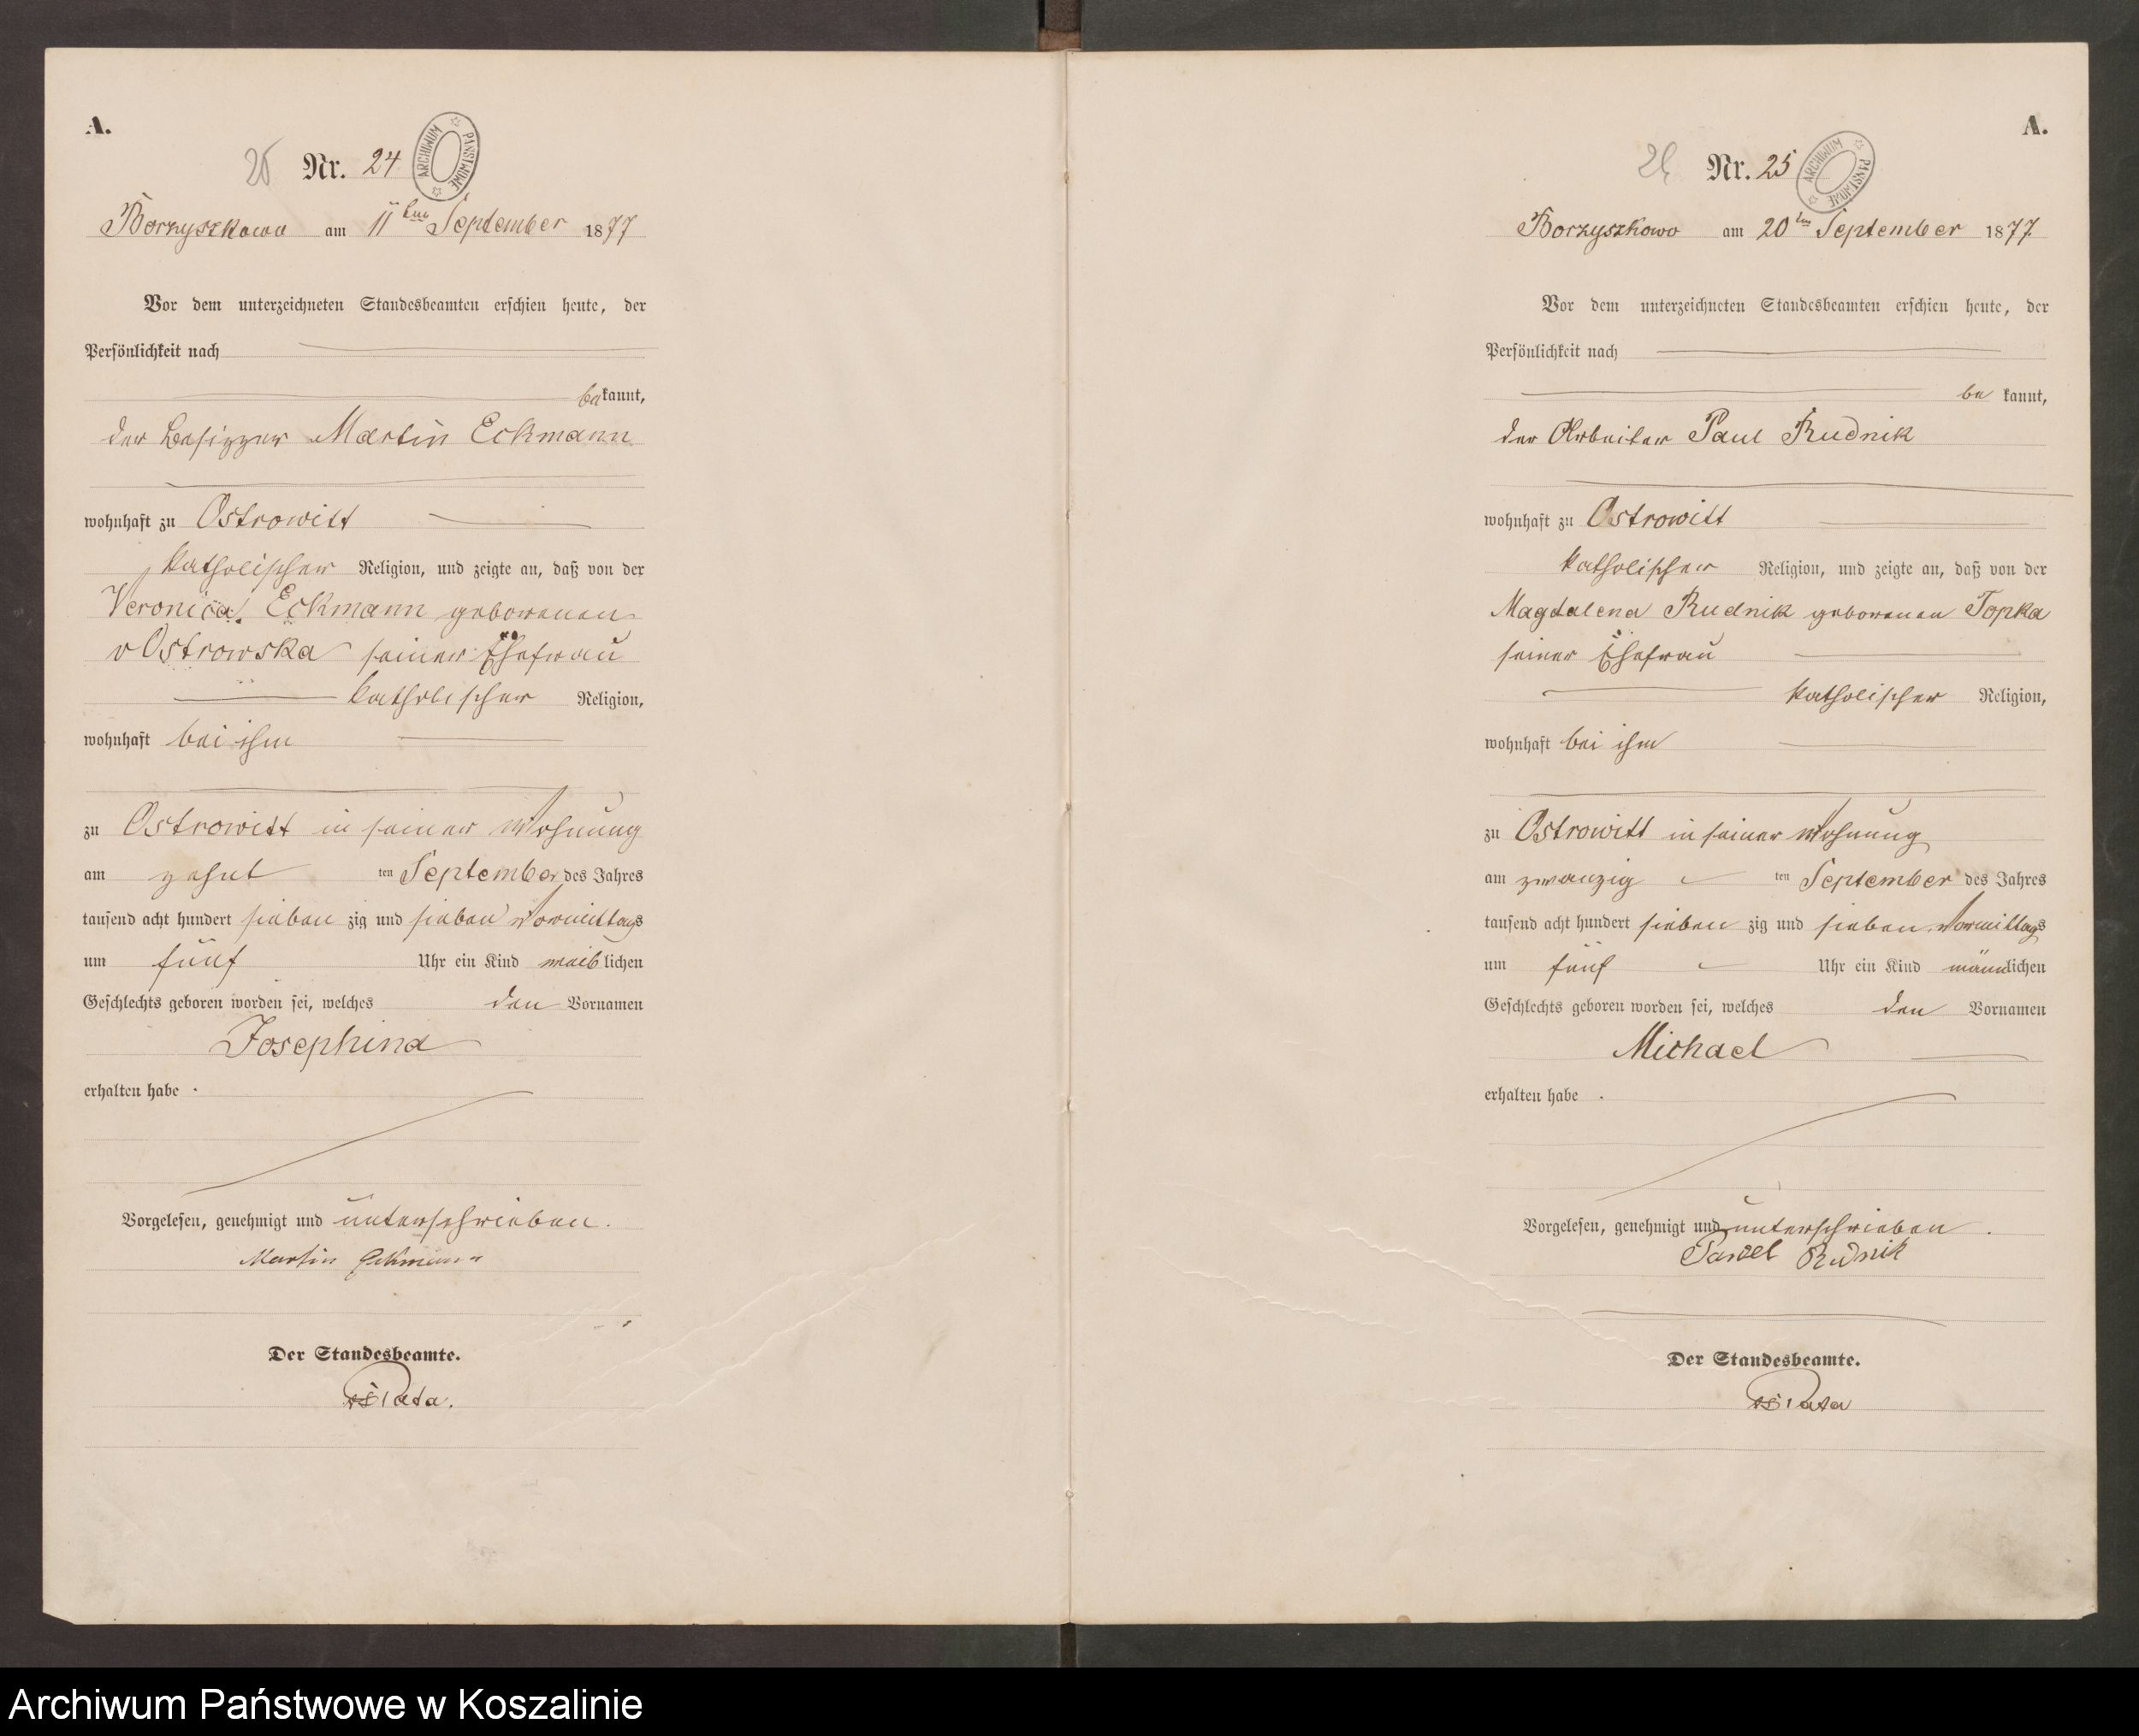 A.
Nr. 24
ARCHIWUM PAŃSTWOWE
Borzyszkowo am 11ten September 1877
Vor dem unterzeichneten Standesbeamten erschien heute, der
Persönlichkeit nach
bekannt,
der Besitzer Martin Eckmann
wohnhaft zu Ostrowitt
katholischer Religion, und zeigte an, daß von der
Veronica Eckmann geborenen
v Ostrowska seiner Ehefrau
katholischer Religion,
wohnhaft bei ihm
zu Ostrowitt in seiner Wohnung
am zehnt ten September des Jahres
tausend acht hundert sieben zig und sieben Vormittags
um fünf Uhr ein Kind weiblichen
Geschlechts geboren worden sei, welches den Vornamen
Josephina
erhalten habe.
Vorgelesen, genehmigt und unterschrieben.
Martin Eckmann
Der Standesbeamte.
A.
Nr. 25
ARCHIWUM PAŃSTWOWE
Borzyszkowo am 20ten September 1877
Vor dem unterzeichneten Standesbeamten erschien heute, der
Persönlichkeit nach
be kannt,
der Arbeiter Paul Rudnik
wohnhaft zu Ostrowitt
katholischer Religion, und zeigte an, daß von der
Magdalena Rudnik geborenen Topka
seiner Ehefrau
katholischer Religion,
wohnhaft bei ihm
zu Ostrowitt in seiner Wohnung
am zwanzig ten September des Jahres
tausend acht hundert sieben zig und sieben Vormittags
um fünf Uhr ein Kind männlichen
Geschlechts geboren worden sei, welches den Vornamen
Michael
erhalten habe.
Vorgelesen, genehmigt und unterschrieben.
Pawel Rudnik
Der Standesbeamte.
Archiwum Państwowe w Koszalinie